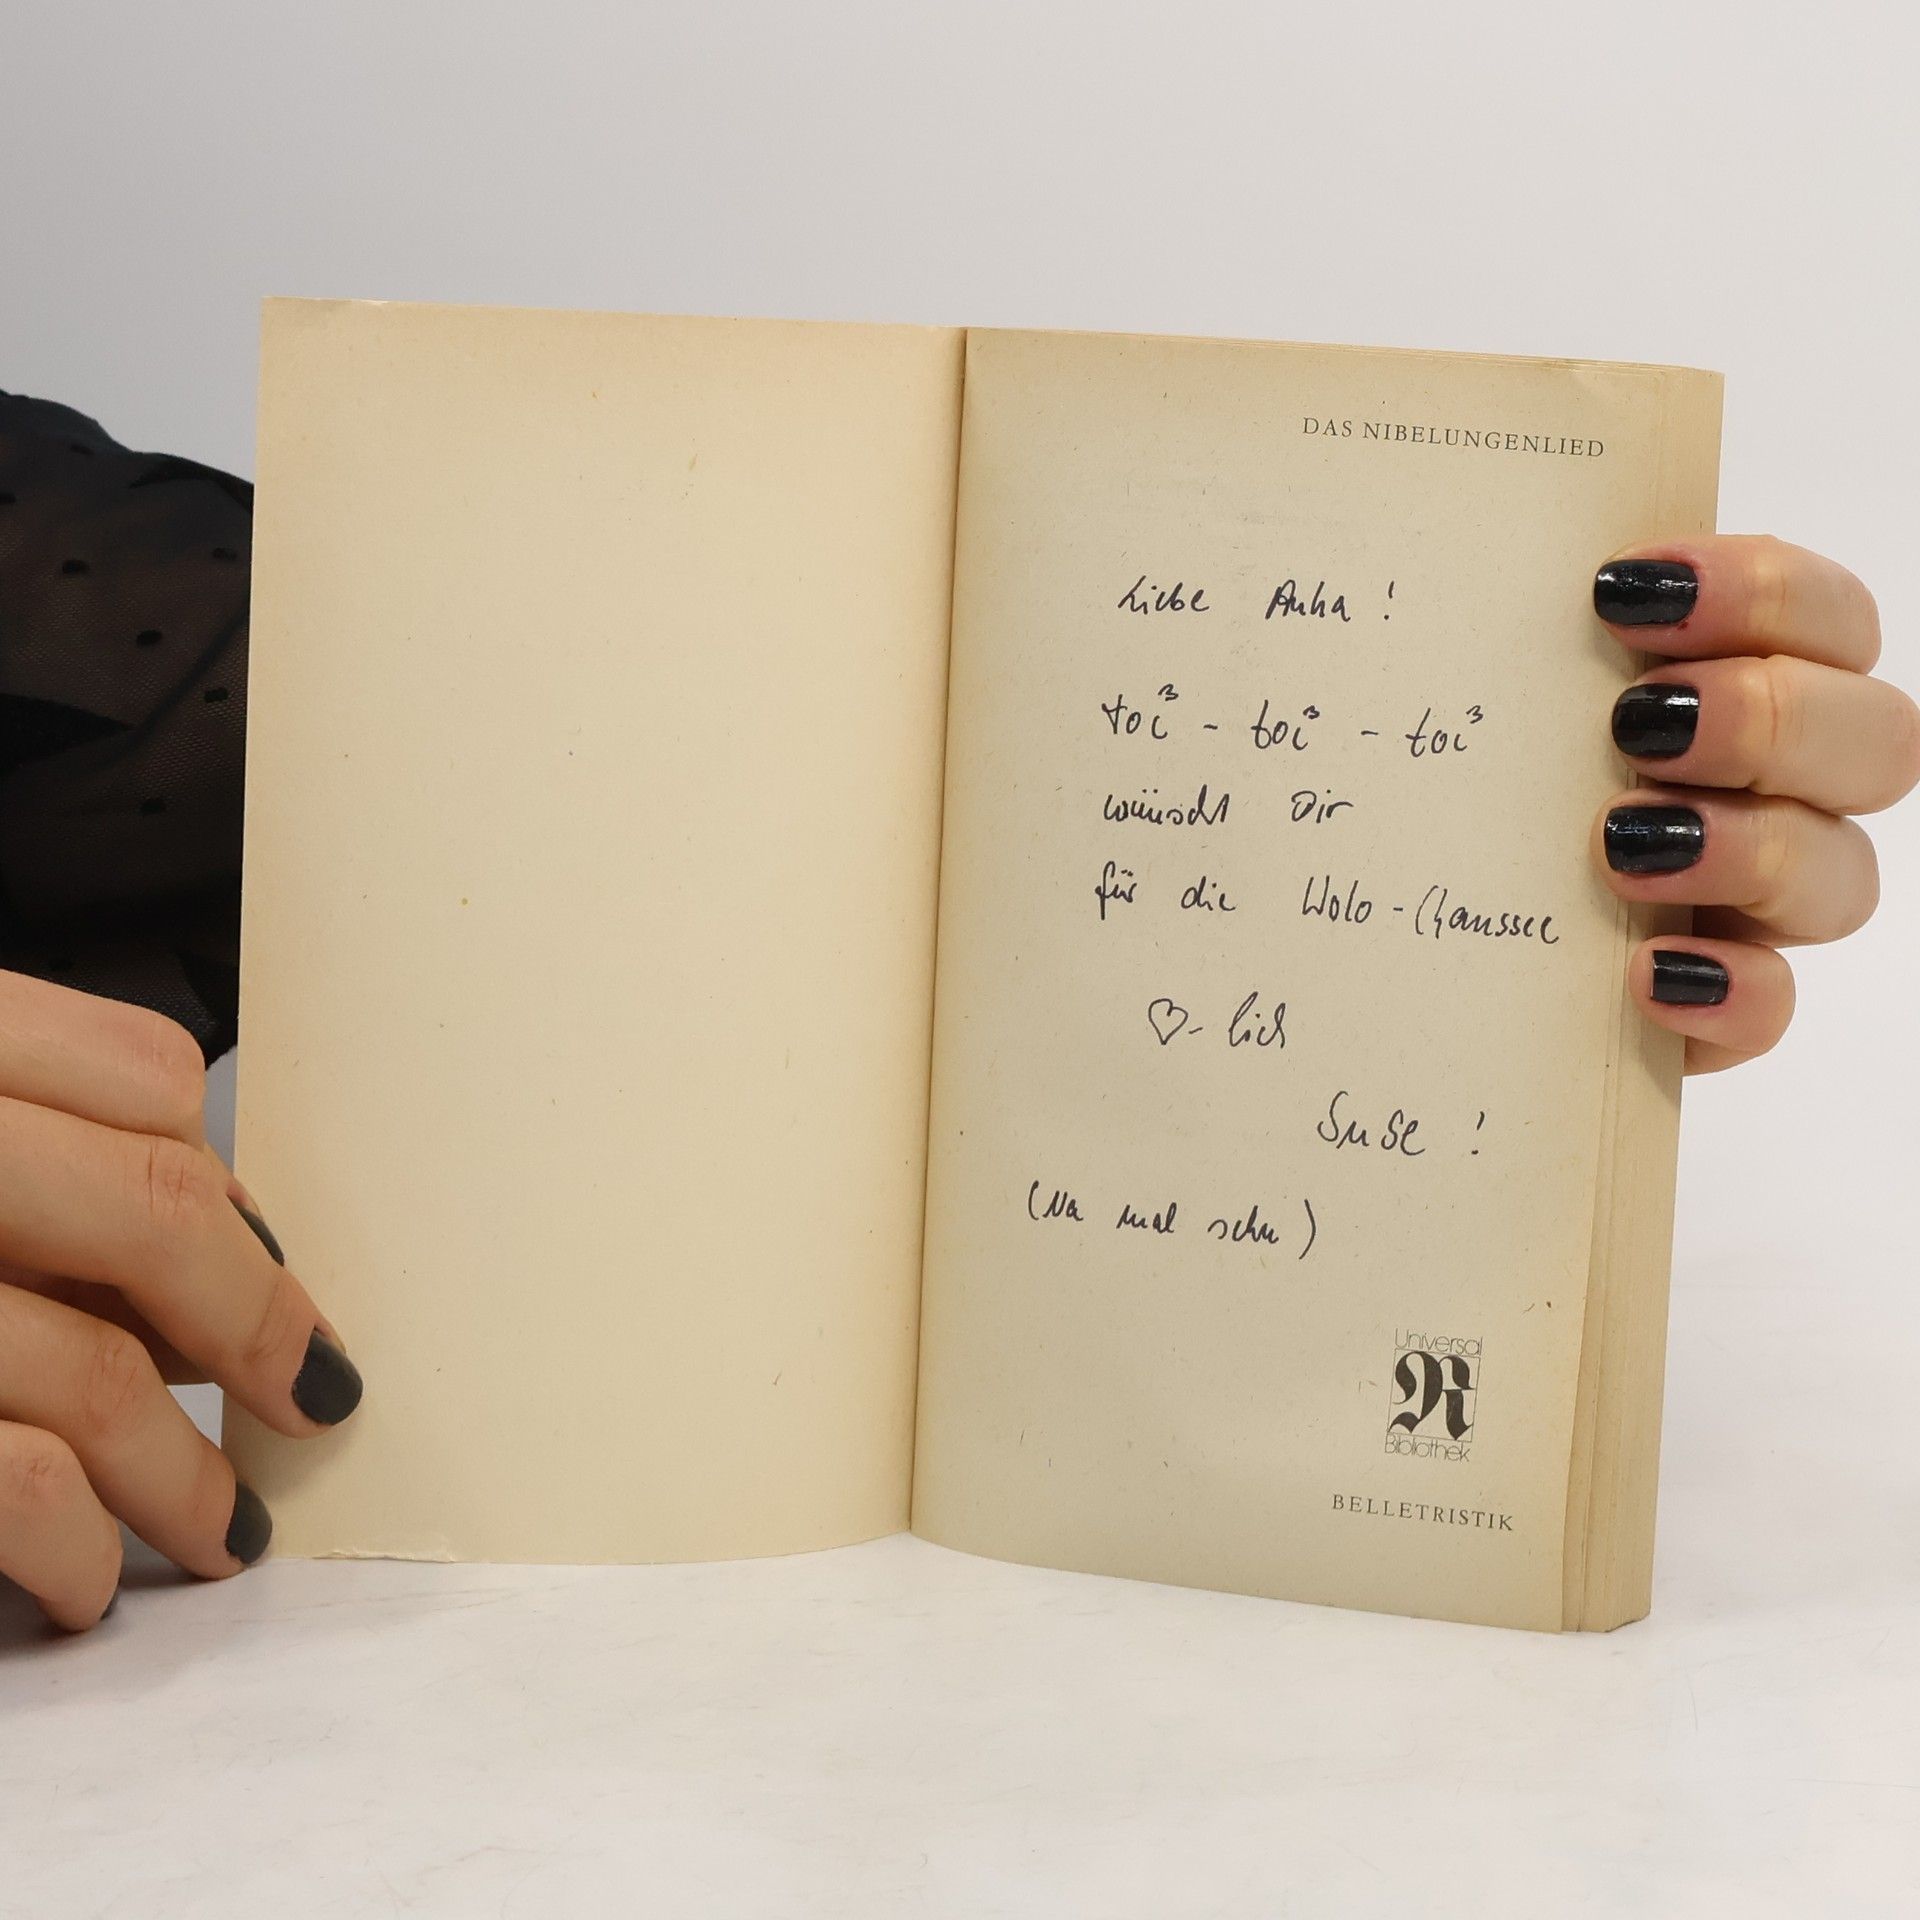 DAS NIBELUNGENLIED
Liebe Anka !
toi³ - toi³ - toi³
wünscht Dir
für die Wolo-Chaussee
♡-lich
Suse !
(Na mal sehn)
Universal
R
Bibliothek
BELLETRISTIK